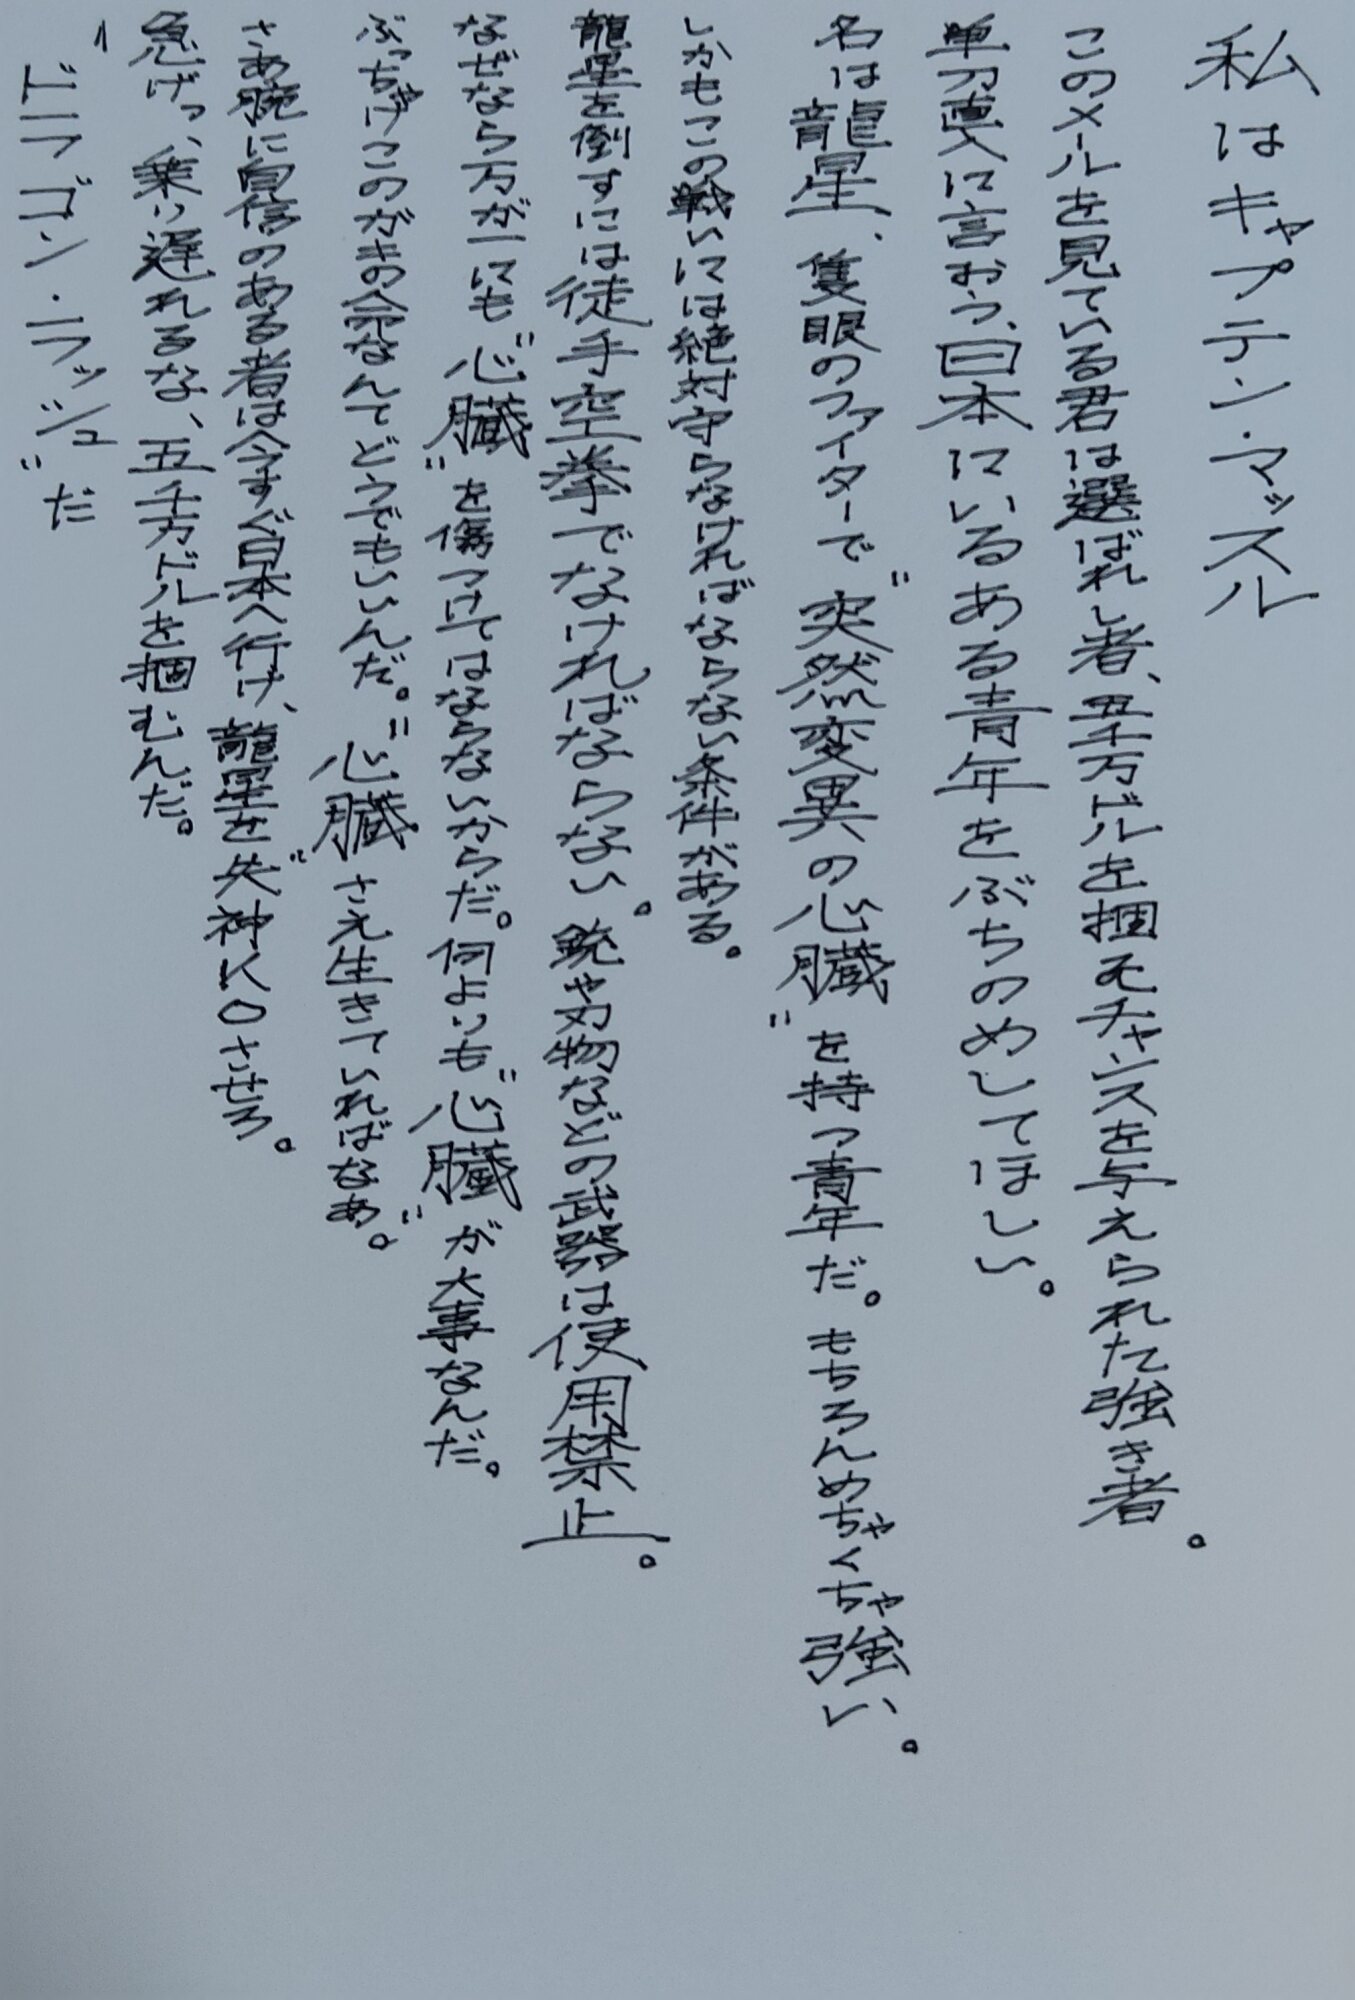 私はキャプテン・マッスル
このメールを見ている君は選ばれし者、五千万ドルを掴むチャンスを与えられた強き者。
単刀直入に言おう、日本にいるある青年をぶちのめしてほしい。
名は龍星、隻眼のファイターで“突然変異の心臓”を持つ青年だ。もちろんめちゃくちゃ強い。
しかもこの戦いには絶対守らなければならない条件がある。
龍星を倒すには徒手空拳でなければならない。銃や刃物などの武器は使用禁止。
なぜなら万が一にも“心臓”を傷つけてはならないからだ。何よりも“心臓”が大事なんだ。
ぶっちゃけこのがきの命なんてどうでもいいんだ。“心臓”さえ生きていればなあ。
さあ腕に自信のある者は今すぐ日本へ行け、龍星を“失神KOさせろ。
急げっ、乗り遅れるな、五千万ドルを掴むんだ。
“ドラゴン・ラッシュ”だ